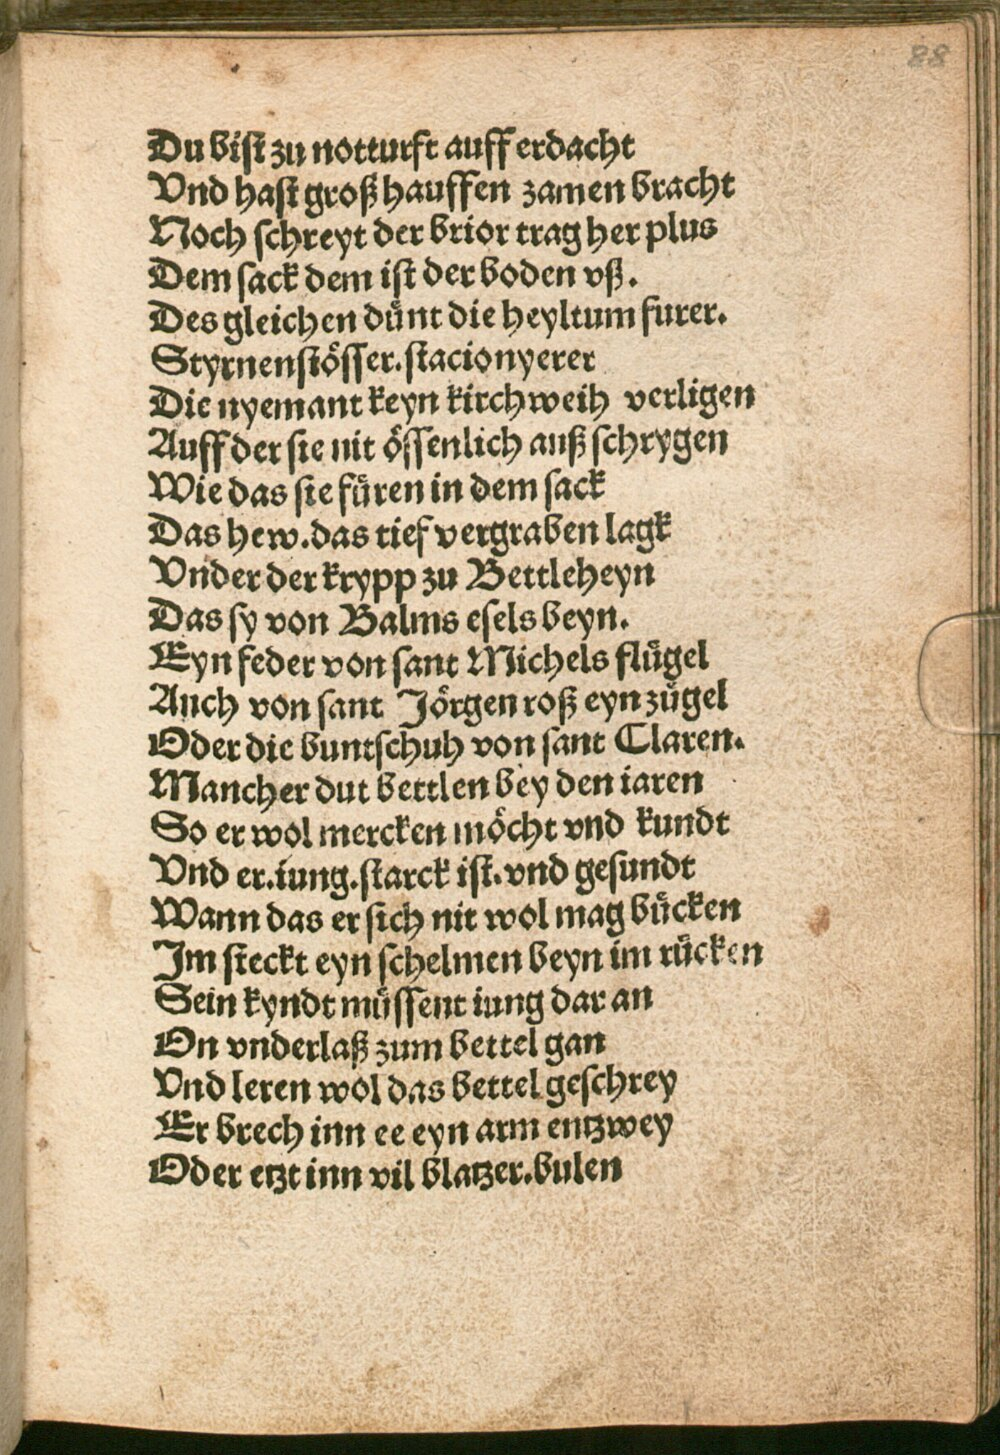 88
Du bist zu notturft auff erdacht
Vnd hast groß hauffen zamen bracht
Noch schreyt der brior trag her plus
Dem sack dem ist der boden vß.
Des gleichen dünt die heyltum furer.
Styrnenstösser. stacionyerer
Die nyemant keyn kirchweih verligen
Auff der sie nit össenlich auß schrygen
Wie das sie füren in dem sack
Das hew. das tief vergraben lagk
Vnder der krypp zu Bettleheyn
Das sy von Balms esels beyn.
Eyn feder von sant Michels flügel
Auch von sant Jörgen roß eyn zügel
Oder die buntschuh von sant Claren.
Mancher dut bettlen bey den iaren
So er wol mercken möcht vnd kundt
Vnd er. iung. starck ist. vnd gesundt
Wann das er sich nit wol mag bücken
Im steckt eyn schelmen beyn im rücken
Sein kyndt müssent iung dar an
On vnderlaß zum bettel gan
Vnd leren wol das bettel geschrey
Er brech inn ee eyn arm entzwey
Oder etzt inn vil blatzer. bulen